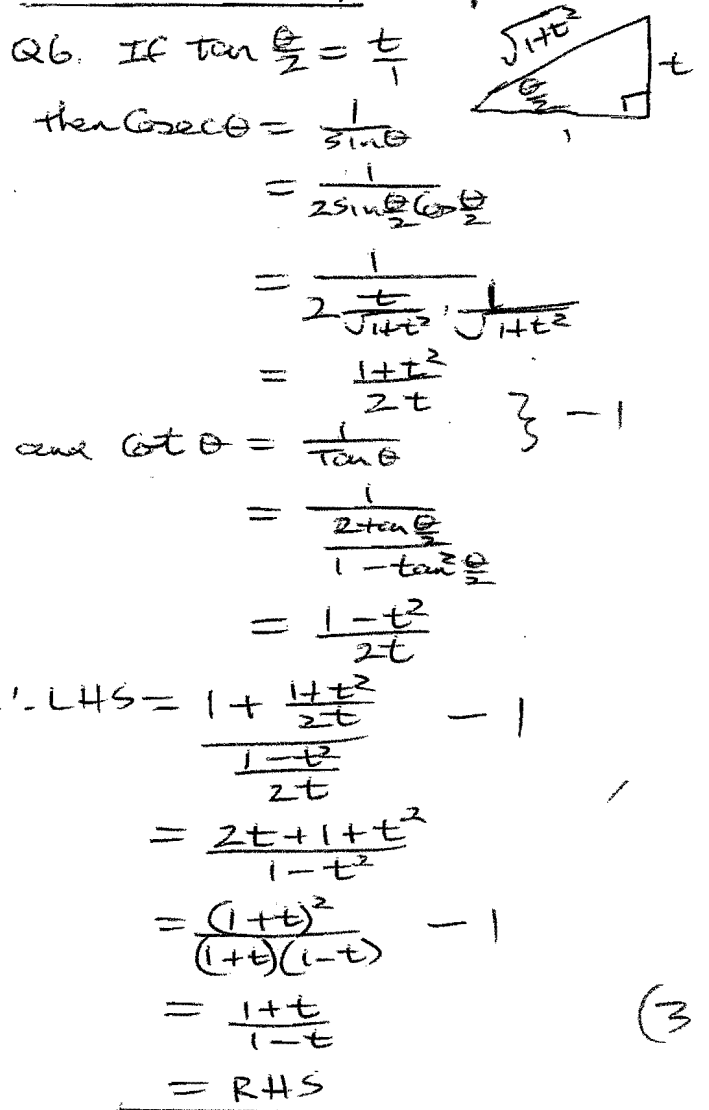 Q6. If tan θ/2 = t/1
√1+t² θ/2 t 1
then Cosecθ = 1/sinθ
= 1/(2sin θ/2 Cos θ/2)
= 1/(2 t/√1+t² · 1/√1+t²)
= (1+t²)/2t } - 1
and Cot θ = 1/Tan θ
= 1/(2tan θ/2 / (1 - tan² θ/2))
= (1 - t²)/2t
∴ LHS = (1 + (1+t²)/2t)/((1-t²)/2t) - 1
= (2t + 1 + t²)/(1 - t²)
= (1+t)²/((1+t)(1-t)) - 1
= (1+t)/(1-t) (3
= RHS